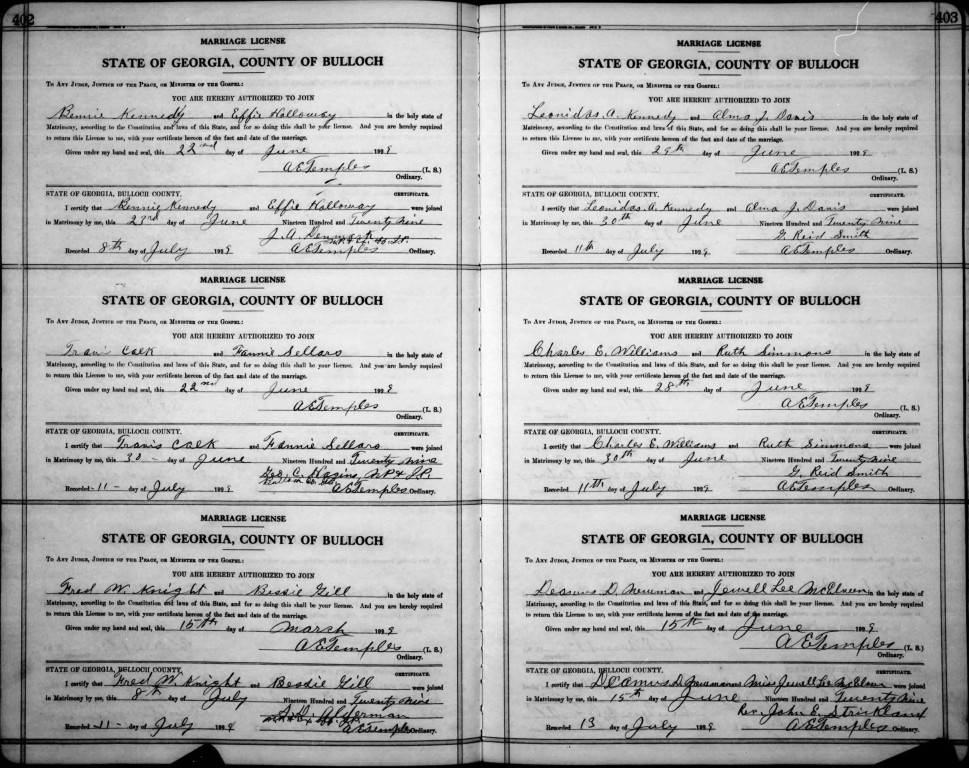 402
MARRIAGE LICENSE
STATE OF GEORGIA, COUNTY OF BULLOCH
To Any Judge, Justice of the Peace, or Minister of the Gospel:
YOU ARE HEREBY AUTHORIZED TO JOIN
Bennie Kennedy and Effie Holloway in the holy state of
Matrimony, according to the Constitution and laws of this State, and for so doing this shall be your license. And you are hereby required
to return this License to me, with your certificate hereon of the fact and date of the marriage.
Given under my hand and seal, this 22nd day of June 1929
A E Temples (L. S.)
Ordinary.
STATE OF GEORGIA, BULLOCH COUNTY. CERTIFICATE.
I certify that Bennie Kennedy and Effie Holloway were joined
in Matrimony by me, this 23rd day of June Nineteen Hundred and Twenty Nine
J. A. Denmark
Recorded 8th day of July 1929 A E Temples Ordinary.
MARRIAGE LICENSE
STATE OF GEORGIA, COUNTY OF BULLOCH
To Any Judge, Justice of the Peace, or Minister of the Gospel:
YOU ARE HEREBY AUTHORIZED TO JOIN
Travis Calk and Fannie Sellars in the holy state of
Matrimony, according to the Constitution and laws of this State, and for so doing this shall be your license. And you are hereby required
to return this License to me, with your certificate hereon of the fact and date of the marriage.
Given under my hand and seal, this 22nd day of June 1929
A E Temples (L. S.)
Ordinary.
STATE OF GEORGIA, BULLOCH COUNTY. CERTIFICATE.
I certify that Travis Calk and Fannie Sellars were joined
in Matrimony by me, this 30- day of June Nineteen Hundred and Twenty Nine
Geo. C. Hagins, N.P. & J.P.
Recorded -11- day of July 1929 A E Temples Ordinary.
MARRIAGE LICENSE
STATE OF GEORGIA, COUNTY OF BULLOCH
To Any Judge, Justice of the Peace, or Minister of the Gospel:
YOU ARE HEREBY AUTHORIZED TO JOIN
Fred W. Knight and Bessie Gill in the holy state of
Matrimony, according to the Constitution and laws of this State, and for so doing this shall be your license. And you are hereby required
to return this License to me, with your certificate hereon of the fact and date of the marriage.
Given under my hand and seal, this 15th day of March 1929
A E Temples (L. S.)
Ordinary.
STATE OF GEORGIA, BULLOCH COUNTY. CERTIFICATE.
I certify that Fred W. Knight and Bessie Gill were joined
in Matrimony by me, this 8th day of July Nineteen Hundred and Twenty Nine
Alderman
Recorded -11- day of July 1929 A E Temples Ordinary.
403
MARRIAGE LICENSE
STATE OF GEORGIA, COUNTY OF BULLOCH
To Any Judge, Justice of the Peace, or Minister of the Gospel:
YOU ARE HEREBY AUTHORIZED TO JOIN
Leonidas A. Kennedy and Alma J. Davis in the holy state of
Matrimony, according to the Constitution and laws of this State, and for so doing this shall be your license. And you are hereby required
to return this License to me, with your certificate hereon of the fact and date of the marriage.
Given under my hand and seal, this 29th day of June 1929
A E Temples (L. S.)
Ordinary.
STATE OF GEORGIA, BULLOCH COUNTY. CERTIFICATE.
I certify that Leonidas A. Kennedy and Alma J. Davis were joined
in Matrimony by me, this 30th day of June Nineteen Hundred and Twenty Nine
G. Reid Smith
Recorded 11th day of July 1929 A E Temples Ordinary.
MARRIAGE LICENSE
STATE OF GEORGIA, COUNTY OF BULLOCH
To Any Judge, Justice of the Peace, or Minister of the Gospel:
YOU ARE HEREBY AUTHORIZED TO JOIN
Charles E. Williams and Ruth Simmons in the holy state of
Matrimony, according to the Constitution and laws of this State, and for so doing this shall be your license. And you are hereby required
to return this License to me, with your certificate hereon of the fact and date of the marriage.
Given under my hand and seal, this 28th day of June 1929
A E Temples (L. S.)
Ordinary.
STATE OF GEORGIA, BULLOCH COUNTY. CERTIFICATE.
I certify that Charles E. Williams and Ruth Simmons were joined
in Matrimony by me, this 30th day of June Nineteen Hundred and Twenty Nine
G. Reid Smith
Recorded 11th day of July 1929 A E Temples Ordinary.
MARRIAGE LICENSE
STATE OF GEORGIA, COUNTY OF BULLOCH
To Any Judge, Justice of the Peace, or Minister of the Gospel:
YOU ARE HEREBY AUTHORIZED TO JOIN
D. Newman and Jewell Lee McElveen in the holy state of
Matrimony, according to the Constitution and laws of this State, and for so doing this shall be your license. And you are hereby required
to return this License to me, with your certificate hereon of the fact and date of the marriage.
Given under my hand and seal, this 15th day of June 1929
A E Temples (L. S.)
Ordinary.
STATE OF GEORGIA, BULLOCH COUNTY. CERTIFICATE.
I certify that D. Newman and Miss Jewell Lee McElveen were joined
in Matrimony by me, this 15th day of June Nineteen Hundred and Twenty Nine
Rev. John E. Strickland
Recorded 13 day of July 1929 A E Temples Ordinary.